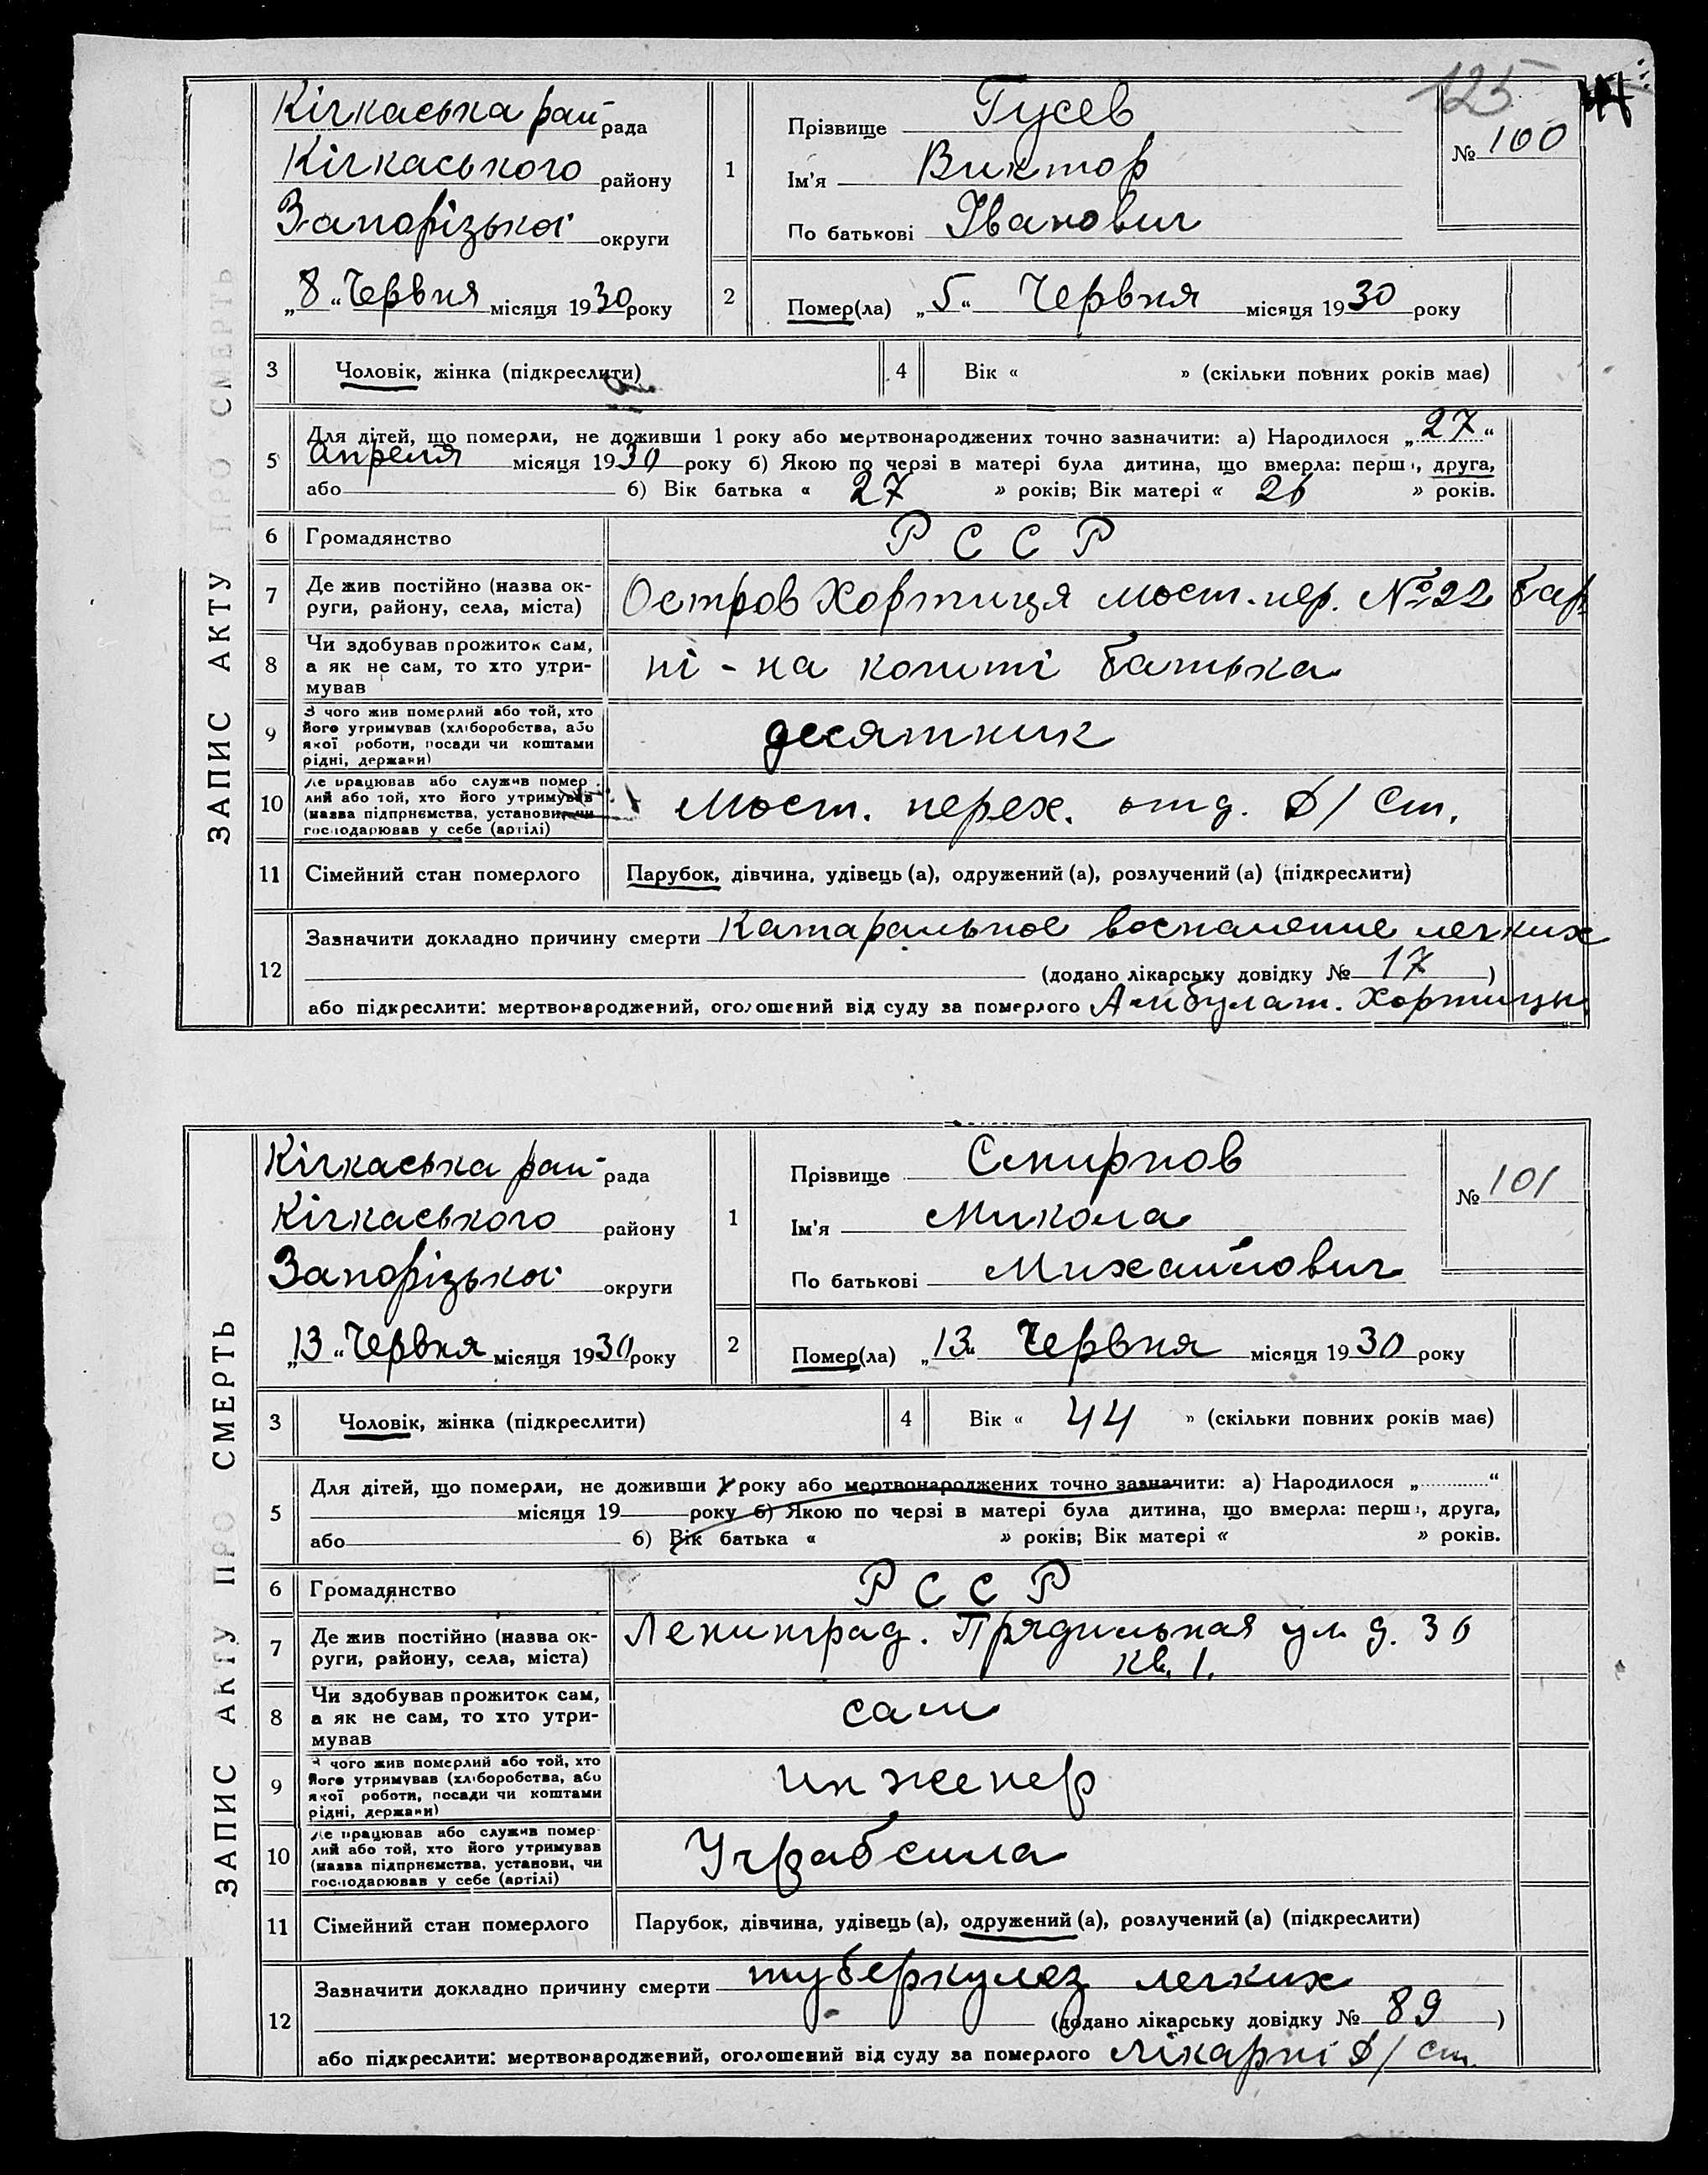 125
ЗАПИС АКТУ ПРО СМЕРТЬ
Кічкаська рай рада
Кічкаського району
Запорізької округи
„8“ Червня місяця 1930 року
1
Прізвище Гусев
Ім'я Виктор
По батькові Іванович
№ 100
2
Помер(ла) „5“ Червня місяця 1930 року
3
Чоловік, жінка (підкреслити)
4
Вік « » (скільки повних років має)
5
Для дітей, що померли, не доживши 1 року або мертвонароджених точно зазначити: а) Народилося „27“
апреля місяця 1930 року б) Якою по черзі в матері була дитина, що вмерла: перша, друга,
або б) Вік батька « 27 » років; Вік матері « 26 » років.
6
Громадянство
Р С С Р
7
Де жив постійно (назва ок-
руги, району, села, міста)
Остров Хортиця мост. пер. № 22 бар
8
Чи здобував прожиток сам,
а як не сам, то хто утри-
мував
ні - на кошті батька
9
З чого жив померлий або той, хто
його утримував (хліборобства, або
якої роботи, посади чи коштами
рідні, держави)
десятник
10
Де працював або служив помер-
лий або той, хто його утримував
(назва підприємства, установи, чи
господарював у себе (артілі)
Мост. перех. отд. Д/Ст.
11
Сімейний стан померлого
Парубок, дівчина, удівець (а), одружений (а), розлучений (а) (підкреслити)
12
Зазначити докладно причину смерти Катаральное воспаление легких
(додано лікарську довідку № 17 )
або підкреслити: мертвонароджений, оголошений від суду за померлого Амбулат. Хортицы
ЗАПИС АКТУ ПРО СМЕРТЬ
Кічкаська рай рада
Кічкаського району
Запорізької округи
„13“ Червня місяця 1930 року
1
Прізвище Смирнов
Ім'я Микола
По батькові Михайлович
№ 101
2
Помер(ла) „13“ Червня місяця 1930 року
3
Чоловік, жінка (підкреслити)
4
Вік « 44 » (скільки повних років має)
5
Для дітей, що померли, не доживши 1 року або мертвонароджених точно зазначити: а) Народилося „ “
місяця 19 року б) Якою по черзі в матері була дитина, що вмерла: перша, друга,
або б) Вік батька « » років; Вік матері « » років.
6
Громадянство
Р С С Р
7
Де жив постійно (назва ок-
руги, району, села, міста)
Ленинград. Прядильная ул д. 30
кв. 1.
8
Чи здобував прожиток сам,
а як не сам, то хто утри-
мував
сам
9
З чого жив померлий або той, хто
його утримував (хліборобства, або
якої роботи, посади чи коштами
рідні, держави)
инженер
10
Де працював або служив помер-
лий або той, хто його утримував
(назва підприємства, установи, чи
господарював у себе (артілі)
11
Сімейний стан померлого
Парубок, дівчина, удівець (а), одружений (а), розлучений (а) (підкреслити)
12
Зазначити докладно причину смерти туберкулез легких
(додано лікарську довідку № 89 )
або підкреслити: мертвонароджений, оголошений від суду за померлого Лікарні Д/ст.